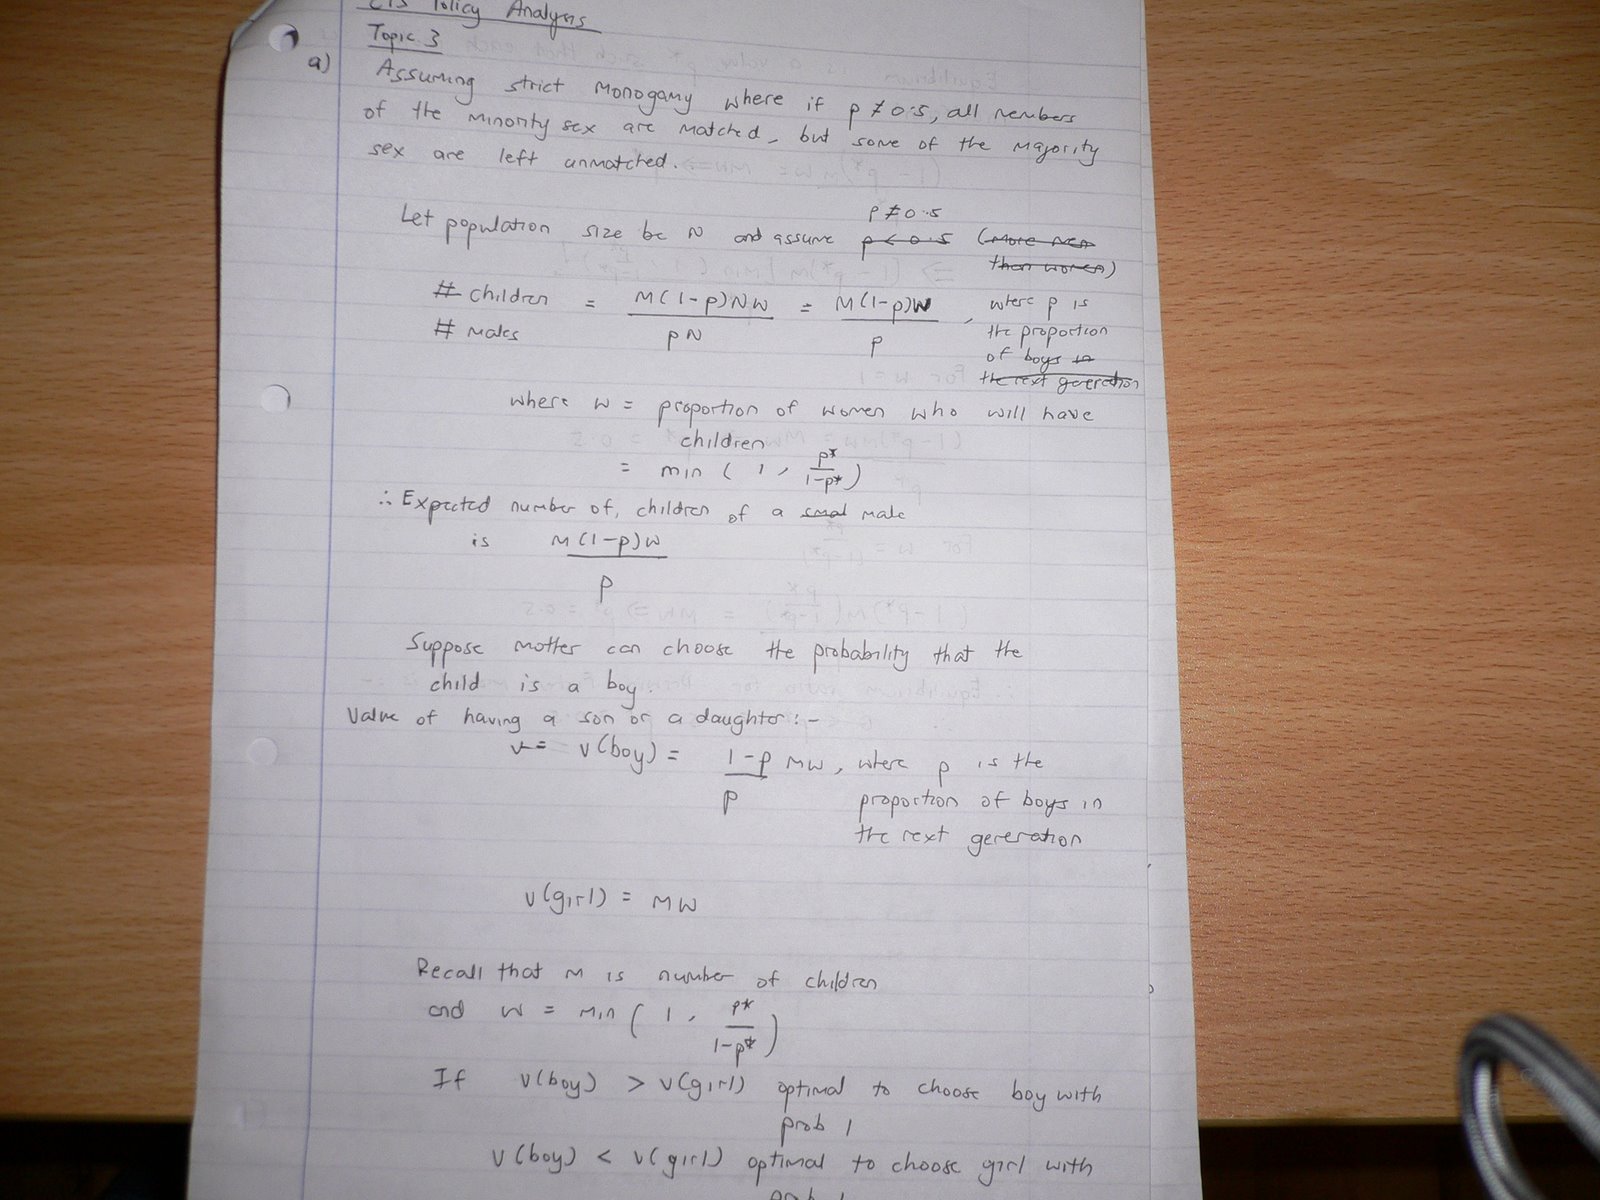 Policy Analysis
Topic 3
a) Assuming strict monogamy where if p ≠ 0.5, all members
of the minority sex are matched, but some of the majority
sex are left unmatched.
p ≠ 0.5
Let population size be N and assume p < 0.5 (more men
than women)
# children = M(1-p)NW = M(1-p)W , where p is
# males pN p the proportion
of boys in
the next generation
where W = proportion of women who will have
children
= min ( 1 , p*/1-p* )
∴ Expected number of, children of a male
is M(1-p)W
p
Suppose mother can choose the probability that the
child is a boy.
Value of having a son or a daughter:-
v= v(boy) = 1-p MW, where p is the
p proportion of boys in
the next generation
v(girl) = MW
Recall that M is number of children
and W = min ( 1 , p*/1-p* )
If v(boy) > v(girl) optimal to choose boy with
prob 1
v(boy) < v(girl) optimal to choose girl with
prob 1